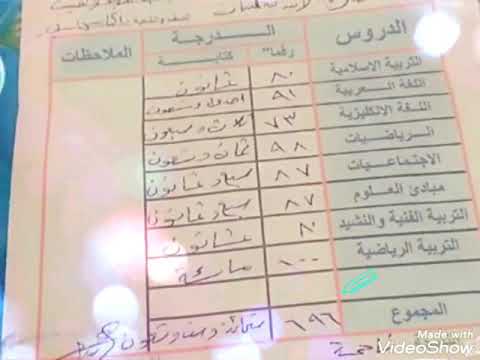 الدروس الـــدرجـــة الملاحظات
رقما" كتابـــة
التربية الاسلامية ٨٠ ثمانون
اللغة العربية ٩١ احدى وتسعون
اللغة الانكليزية ٧٣ ثلاث وسبعون
الرياضيات ٩٨ ثمان وتسعون
الاجتماعيات ٨٧ سبع وثمانون
مبادئ العلوم ٨٧ سبع وثمانون
التربية الفنية والنشيد ٨٠ ثمانون
التربية الرياضية ١٠٠ مائة
المجموع ٦٩٦ ستمائة وست وتسعون
Made with
VideoShow